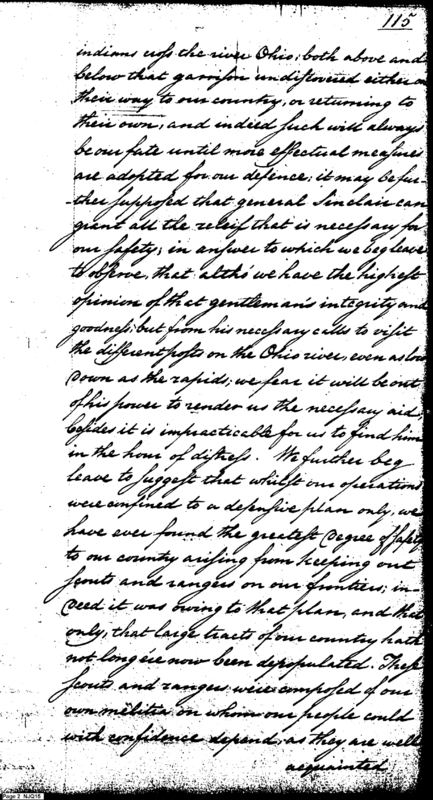 115
indians cross the river Ohio; both above and
below that garrison undiscovered either on
their way to our country, or returning to
their own; and indeed such will always
be our fate until more effectual measures
are adopted for our defence; it may be fur-
-ther supposed that general Sinclair can
grant all the releif that is necessary for
our safety; in answer to which we beg leave
to observe, that altho' we have the highest
opinion of that gentleman's integrity and
goodness; but from his necessary calls to visit
the different posts on the Ohio river, even as low
down as the rapids; we fear it will be out
of his power to render us the necessary aid;
besides it is impracticable for us to find him
in the hour of distress. We further beg
leave to suggest that whilst our operations
were confined to a defensive plan only, we
have ever found the greatest degree of safety
to our country arising from keeping out
scouts and rangers on our frontiers; in-
deed it was owing to that plan, and that
only, that large tracts of our country hath
not long e're now been depopulated. These
scouts and rangers were composed of our
own militia on whom our people could
with confidence depend, as they are well
acquainted
Page 2 NJQ16